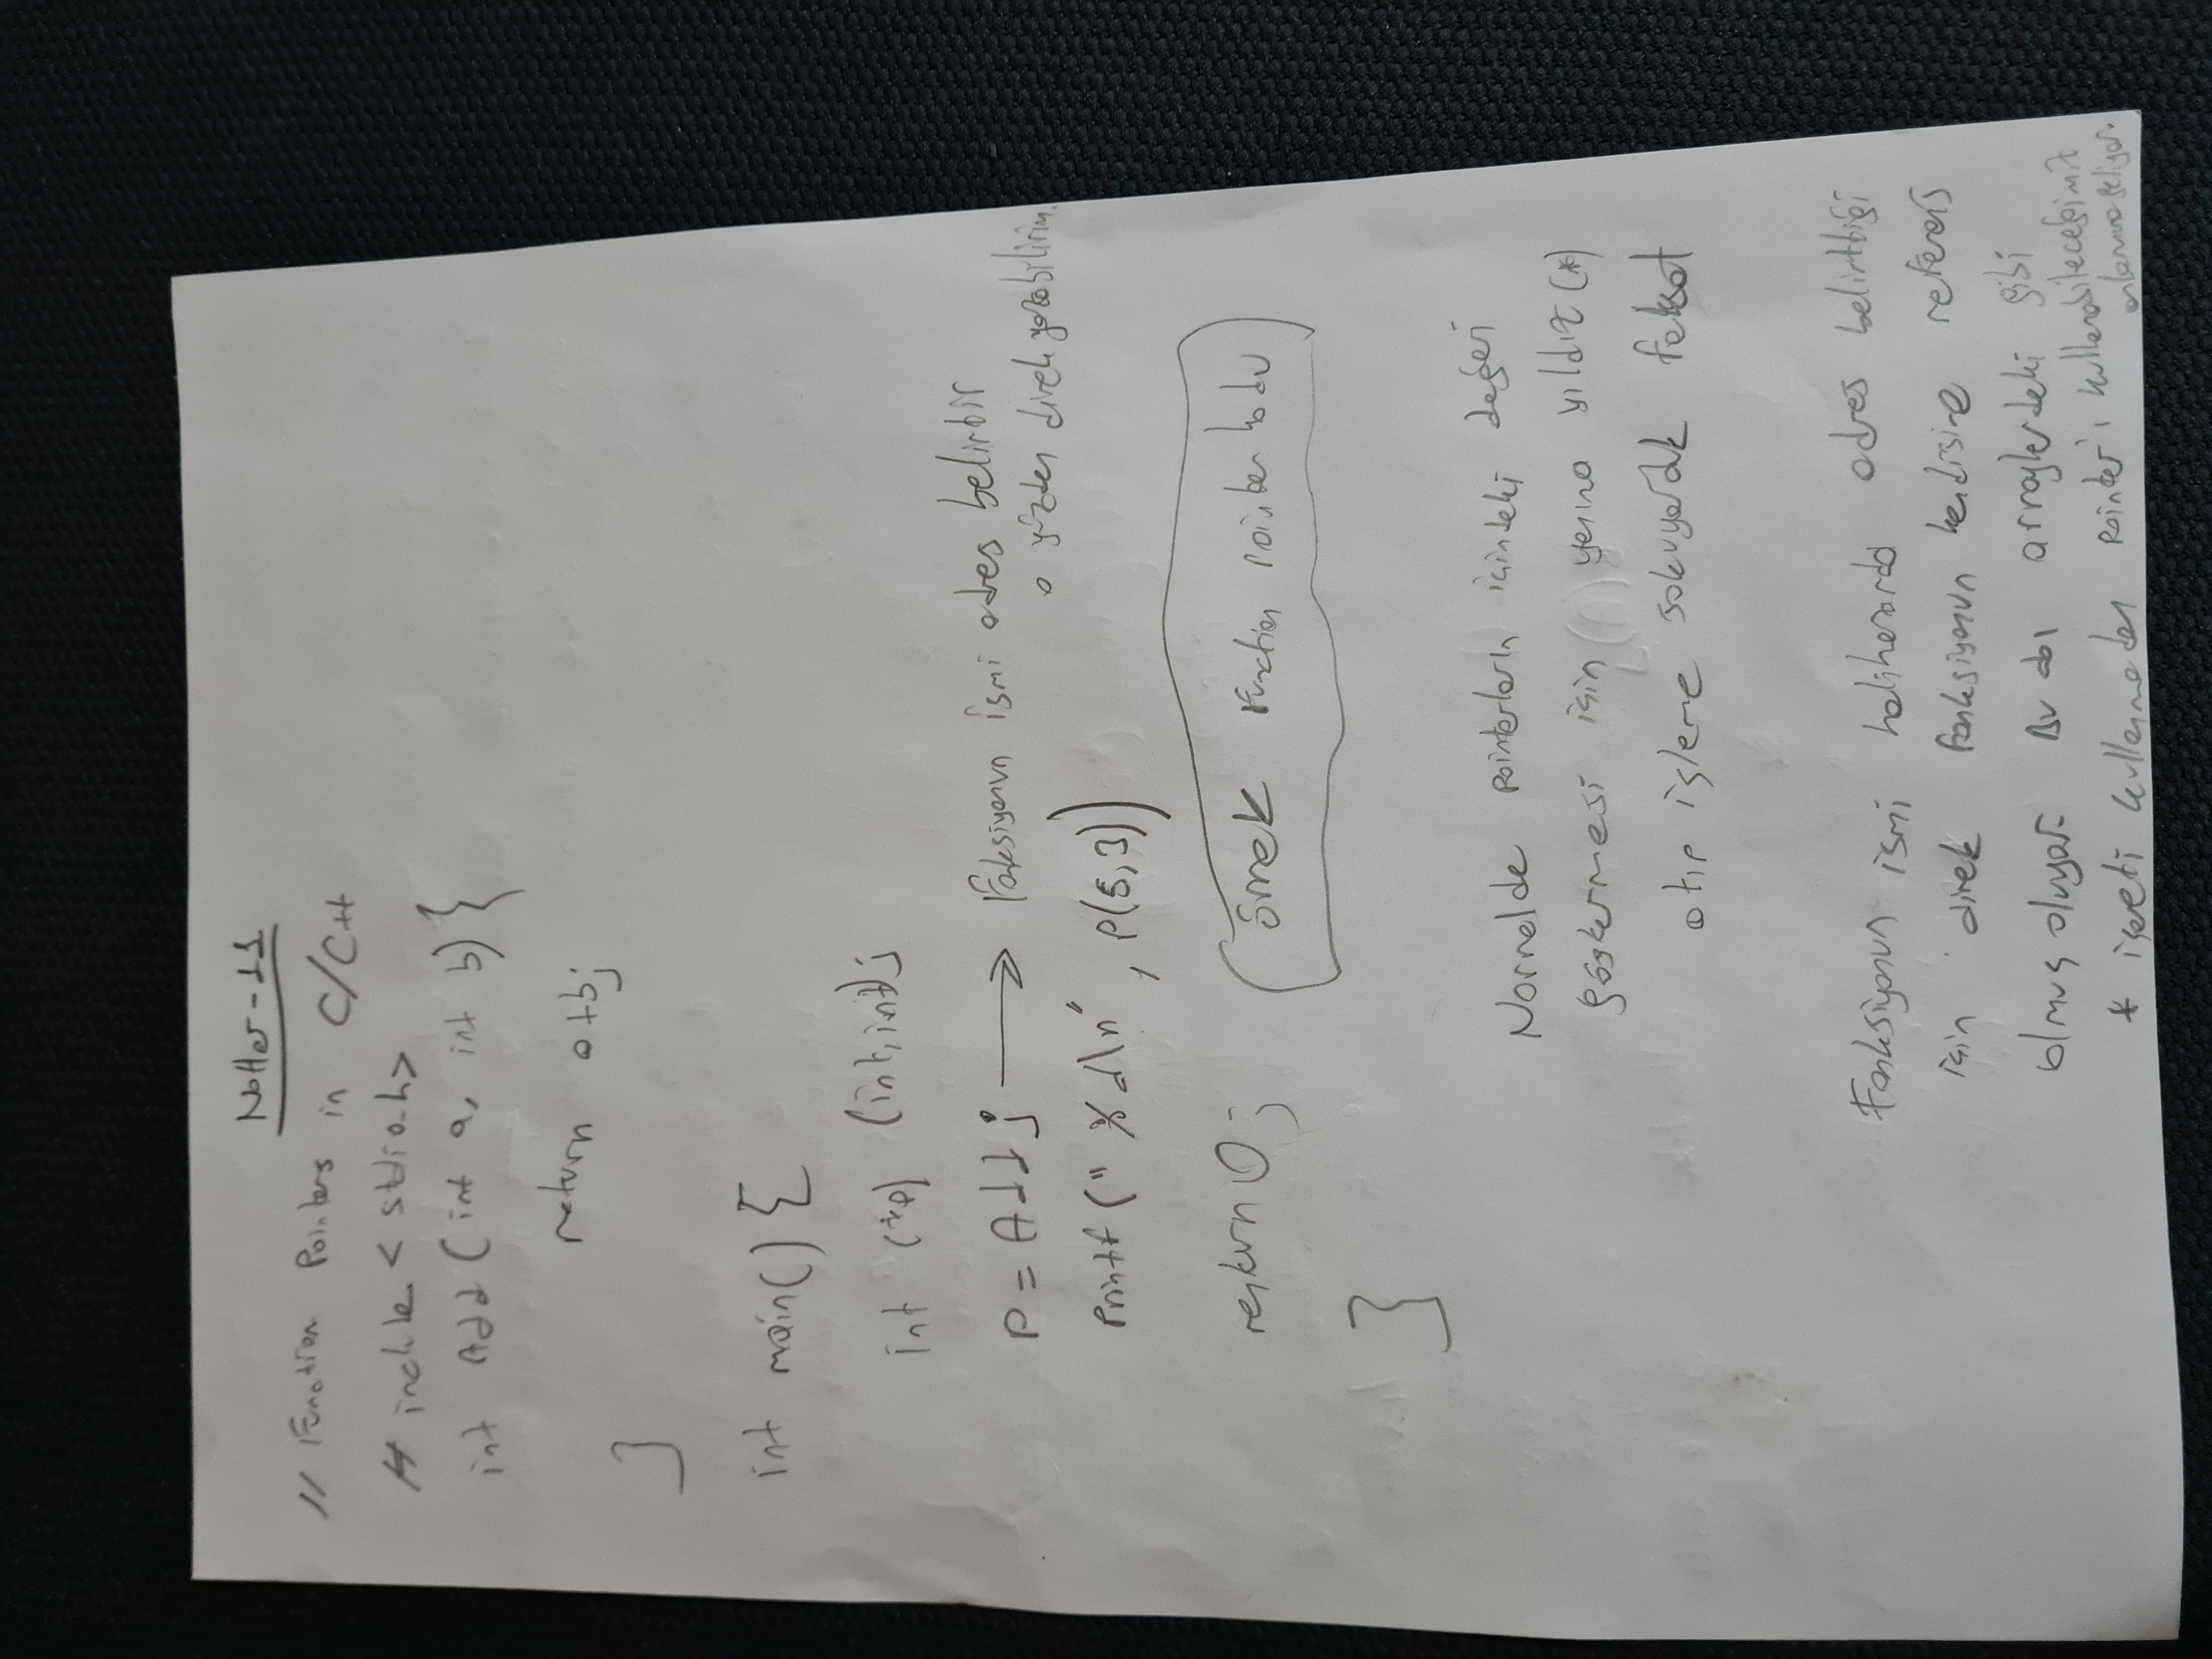 Notlar-11
// Function Pointers in C/C++
# include <stdio.h>
int Add (int a, int b) {
return a+b;
}
int main() {
int (*p) (int, int);
P = Add; → Fonksiyonun ismi adres belirtir
o yüzden direk yazabilirim.
Printf (" %d\n", P(5,3))
return 0;
örnek Function Pointer kodu
}
Normalde pointerların içindeki değeri
göstermesi için yerine yıldız (*)
atıp işleme sokuyorduk fakat
Fonksiyonun ismi halihazırda adres belirttiği
için direk fonksiyonun kendisine referans
olmuş oluyor. Bu da arraylerdeki gibi
* işareti kullanmadan Pointer'ı kullanabileceğimiz
anlamına geliyor.